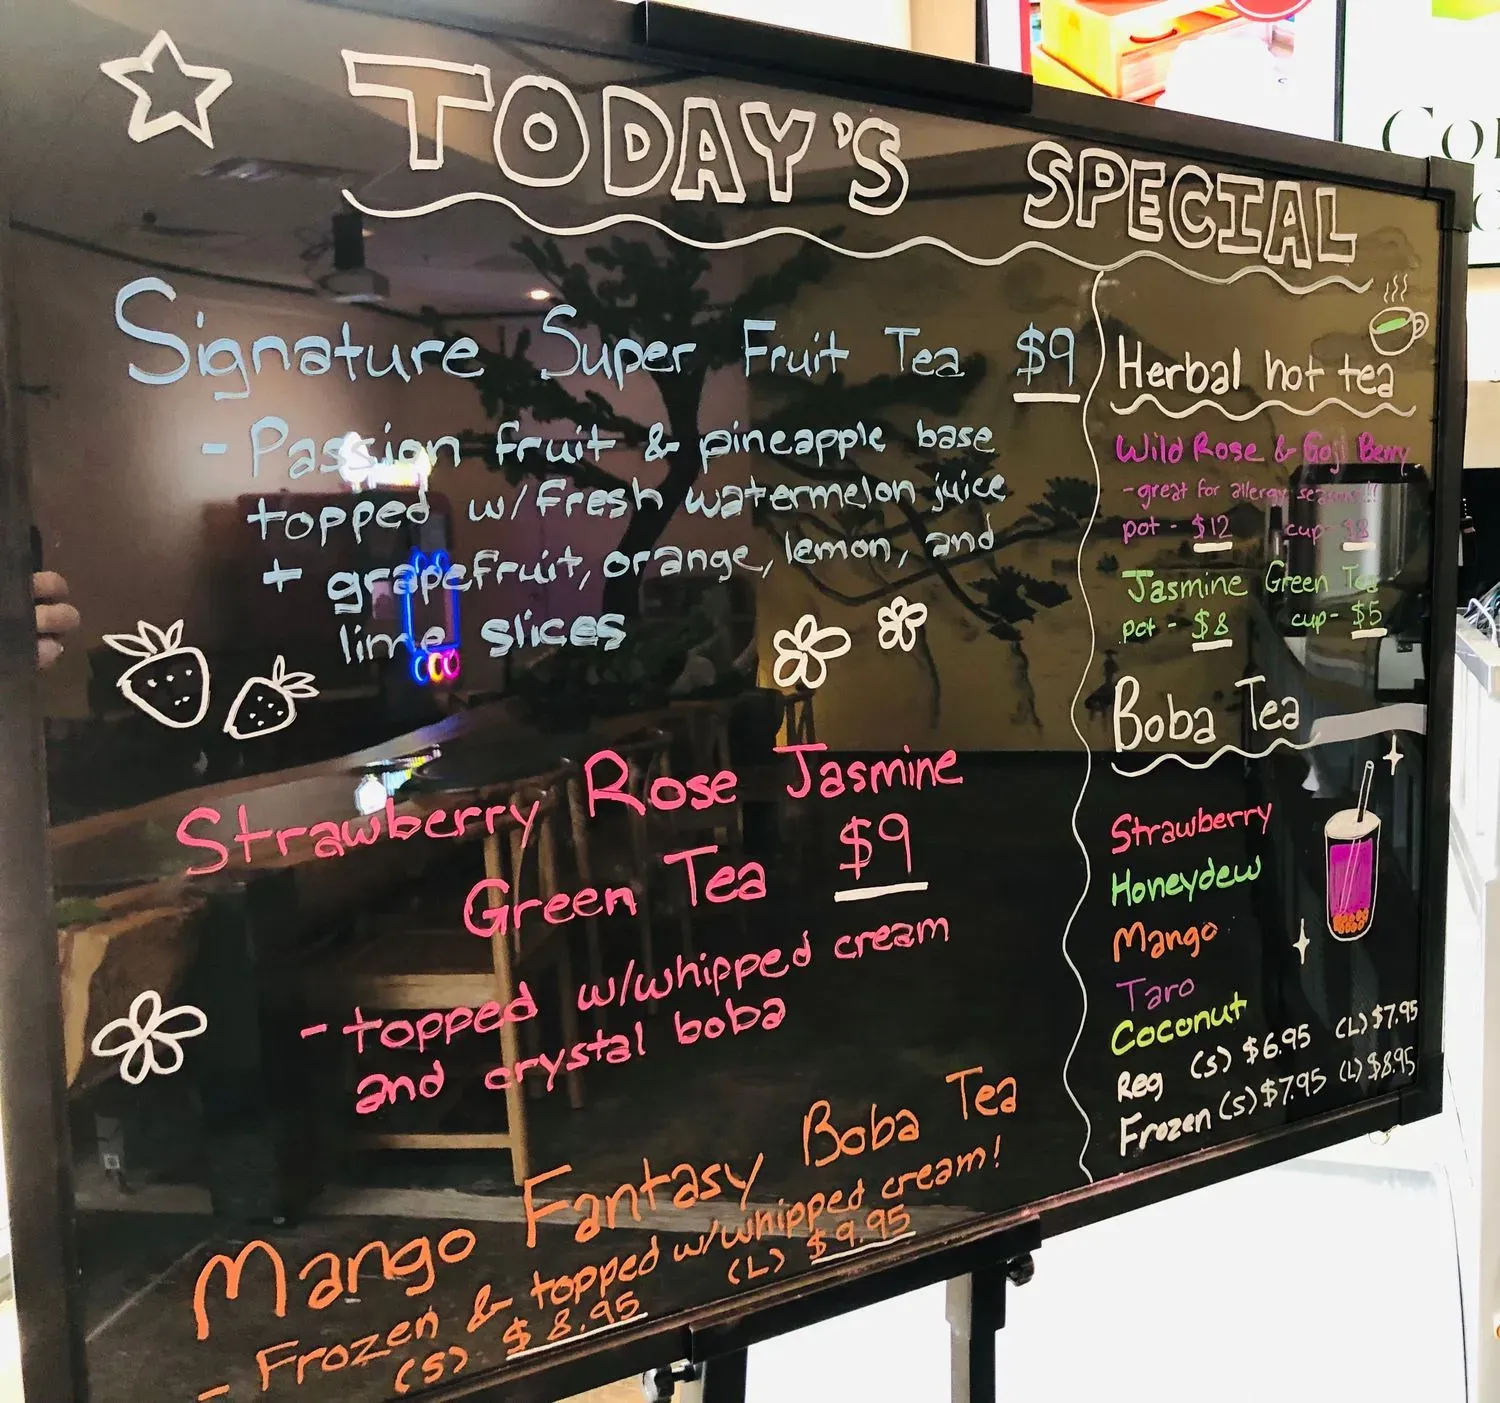 TODAY'S SPECIAL
Signature Super Fruit Tea $9
- Passion fruit & pineapple base
topped w/fresh watermelon juice
+ grapefruit, orange, lemon, and
lime slices
Strawberry Rose Jasmine
Green Tea $9
- topped w/whipped cream
and crystal boba
Mango Fantasy Boba Tea
- Frozen & topped w/whipped cream!
(S) $8.95 (L) $9.95
Herbal hot tea
Wild Rose & Goji Berry
- great for allergy seasons!!
pot - $12 cup-
Jasmine Green Tea
pot - $8 cup- $5
Boba Tea
Strawberry
Honeydew
Mango
Taro
Coconut
Reg (S) $6.95 (L) $7.95
Frozen (S) $7.95 (L) $8.95